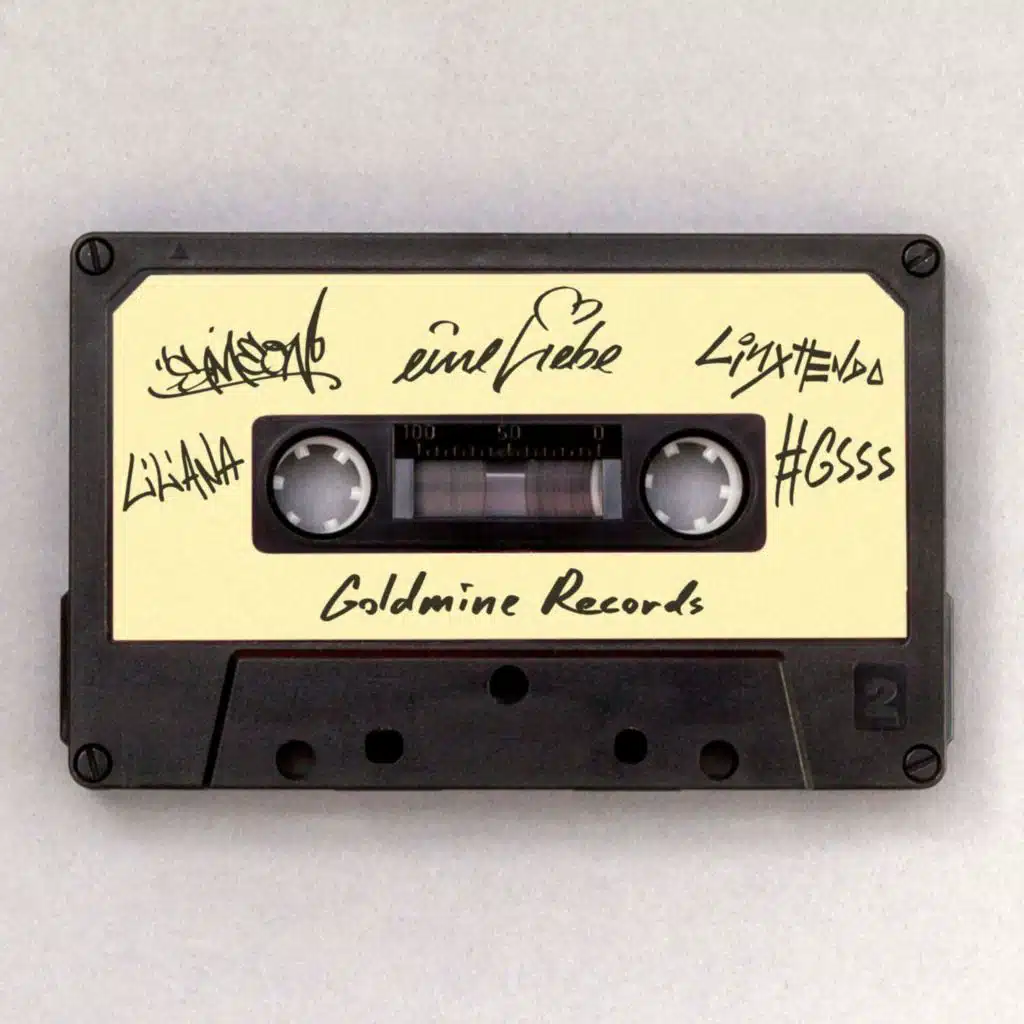 "SIMEON"
eine Liebe
LinxTENDO
LiLiANA
#GSSS
100 50 0
Goldmine Records
2